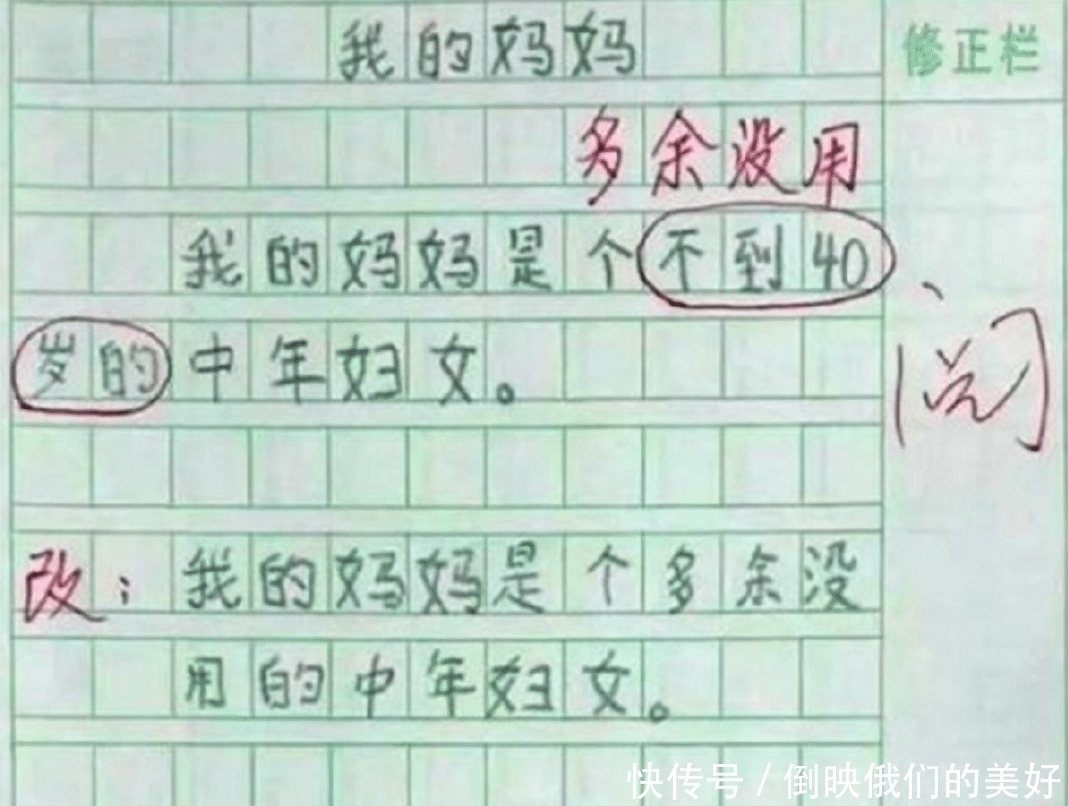 我的妈妈
修正栏
多余没用
我的妈妈是个不到40
岁的中年妇女。
阅
改：我的妈妈是个多余没
用的中年妇女。
快传号 / 倒映俄们的美好